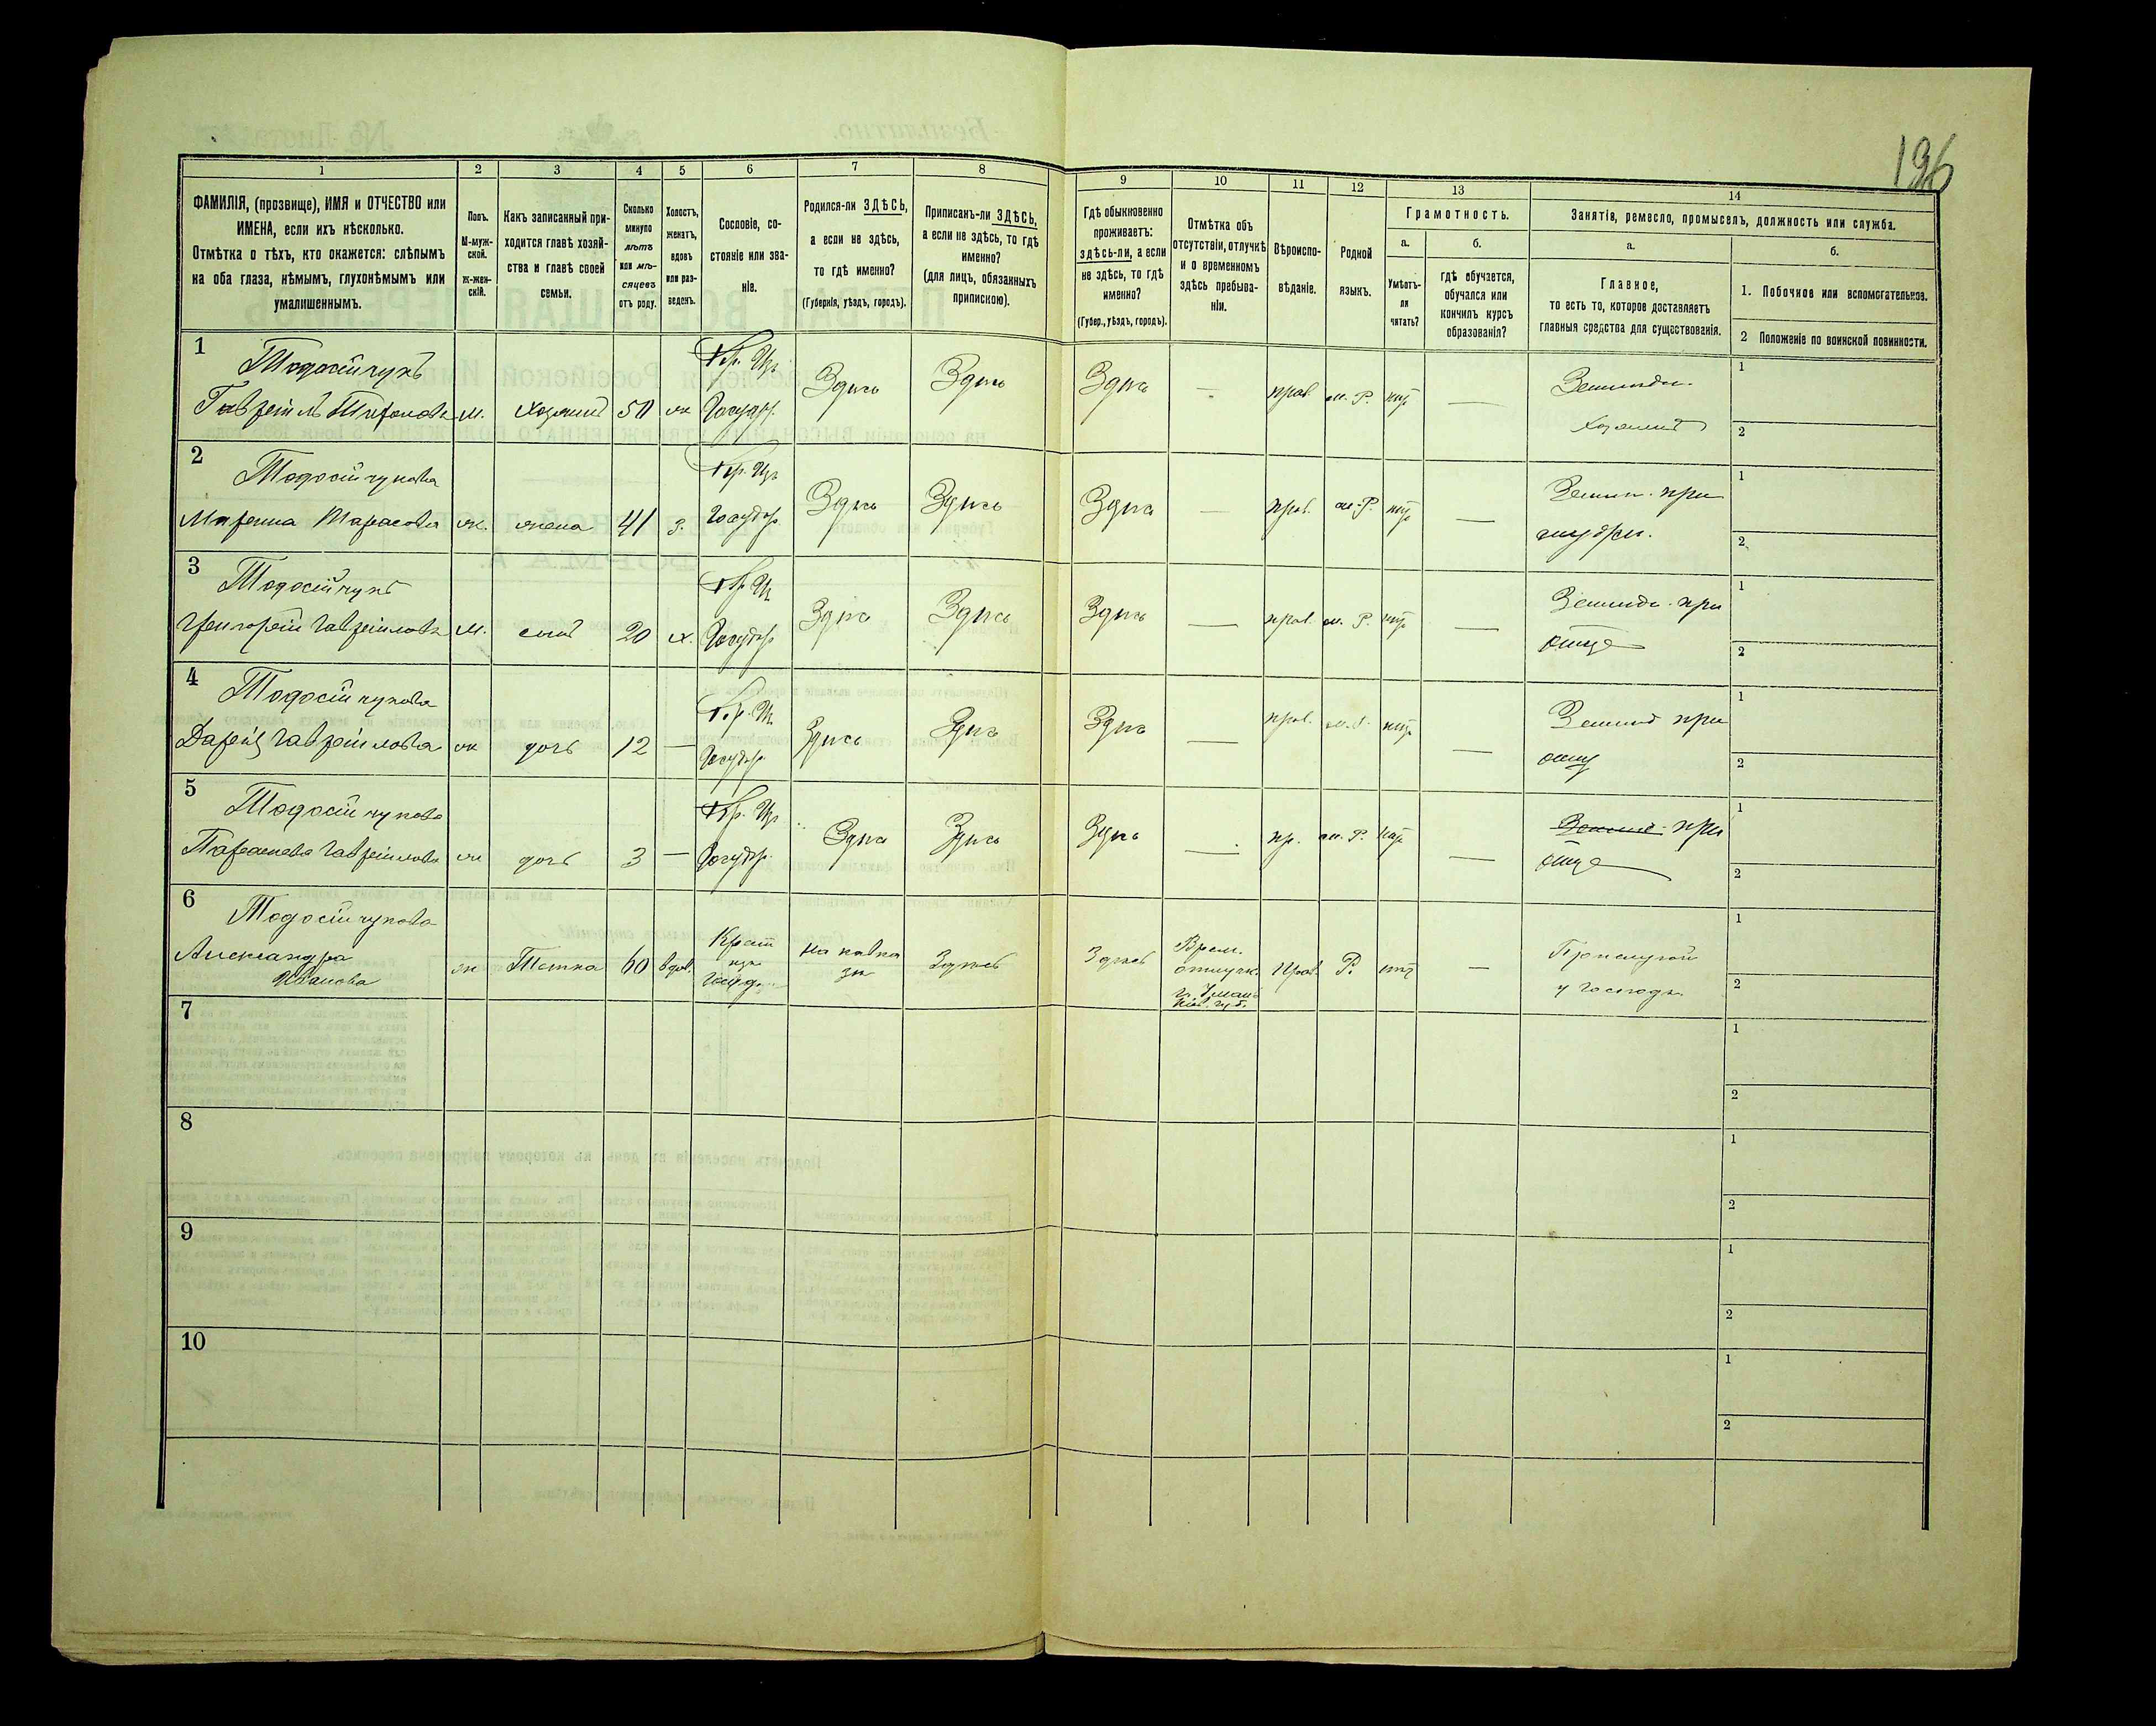 196
1 2 3 4 5 6 7 8 9 10 11 12 13 14
ФАМИЛІЯ, (прозвище), ИМЯ и ОТЧЕСТВО или
ИМЕНА, если ихъ нѣсколько.
Отмѣтка о тѣхъ, кто окажется: слѣпымъ
на оба глаза, нѣмымъ, глухонѣмымъ или
умалишеннымъ.
Полъ.
М-муж-
ской.
Ж-жен-
скій.
Какъ записанный при-
ходится главѣ хозяй-
ства и главѣ своей
семьи.
Сколько
минуло
лѣтъ
или мѣ-
сяцевъ
отъ роду.
Холостъ,
женатъ,
вдовъ
или раз-
веденъ.
Сословіе, со-
стояніе или зва-
ніе.
Родился-ли ЗДѢСЬ,
а если не здѣсь,
то гдѣ именно?
(Губернія, уѣздъ, городъ).
Приписанъ-ли ЗДѢСЬ,
а если не здѣсь, то гдѣ
именно?
(для лицъ, обязанныхъ
припискою).
Гдѣ обыкновенно
проживаетъ:
здѣсь-ли, а если
не здѣсь, то гдѣ
именно?
(Губер., уѣздъ, городъ).
Отмѣтка объ
отсутствіи, отлучкѣ
и о временномъ
здѣсь пребыва-
ніи.
Вѣроиспо-
вѣданіе.
Родной
языкъ.
Грамотность.
а.
Умѣетъ-
ли
читать?
б.
гдѣ обучается,
обучался или
кончилъ курсъ
образованія?
Занятія, ремесло, промыселъ, должность или служба.
а.
Главное,
то есть то, которое доставляетъ
главныя средства для существованія.
б.
1. Побочное или вспомогательное.
2 Положеніе по воинской повинности.
1
Тодосійчукъ
Гавріилъ м. хозяинъ 50 ж Государ. Здѣсь Здѣсь Здѣсь — прав. м. Р. нѣт —
хозяинъ
1
2
2
Тодосійчукова
Марина Тарасова ж. жена 41 з. Государ. Здѣсь Здѣсь Здѣсь — прав. м. Р. нѣт — при
1
2
3
Тодосійчукъ
Григорій Гавріиловъ м. сынъ 20 х. Государ. Здѣсь Здѣсь Здѣсь — прав. м. Р. нѣт — при
отцѣ
1
2
4
Тодосійчукова
Дарія Гавріилова ж дочь 12 — Государ. Здѣсь Здѣсь Здѣсь — прав. м. Р. нѣт — при
отцѣ
1
2
5
Тодосійчукова
Параскева Гавріилова ж дочь 3 — Государ. Здѣсь Здѣсь Здѣсь — пр. м. Р. нѣт — при
отцѣ
1
2
6
Тодосійчукова
Александра
Иванова ж Тетка 60 вдов. Крест. изъ Госуд. на кавка
зѣ Здѣсь Здѣсь Врем.
отлучк.
г. Умань
Кіев. губ. Прав. Р. нѣт —
у господъ
1
2
7
1
2
8
1
2
9
1
2
10
1
2